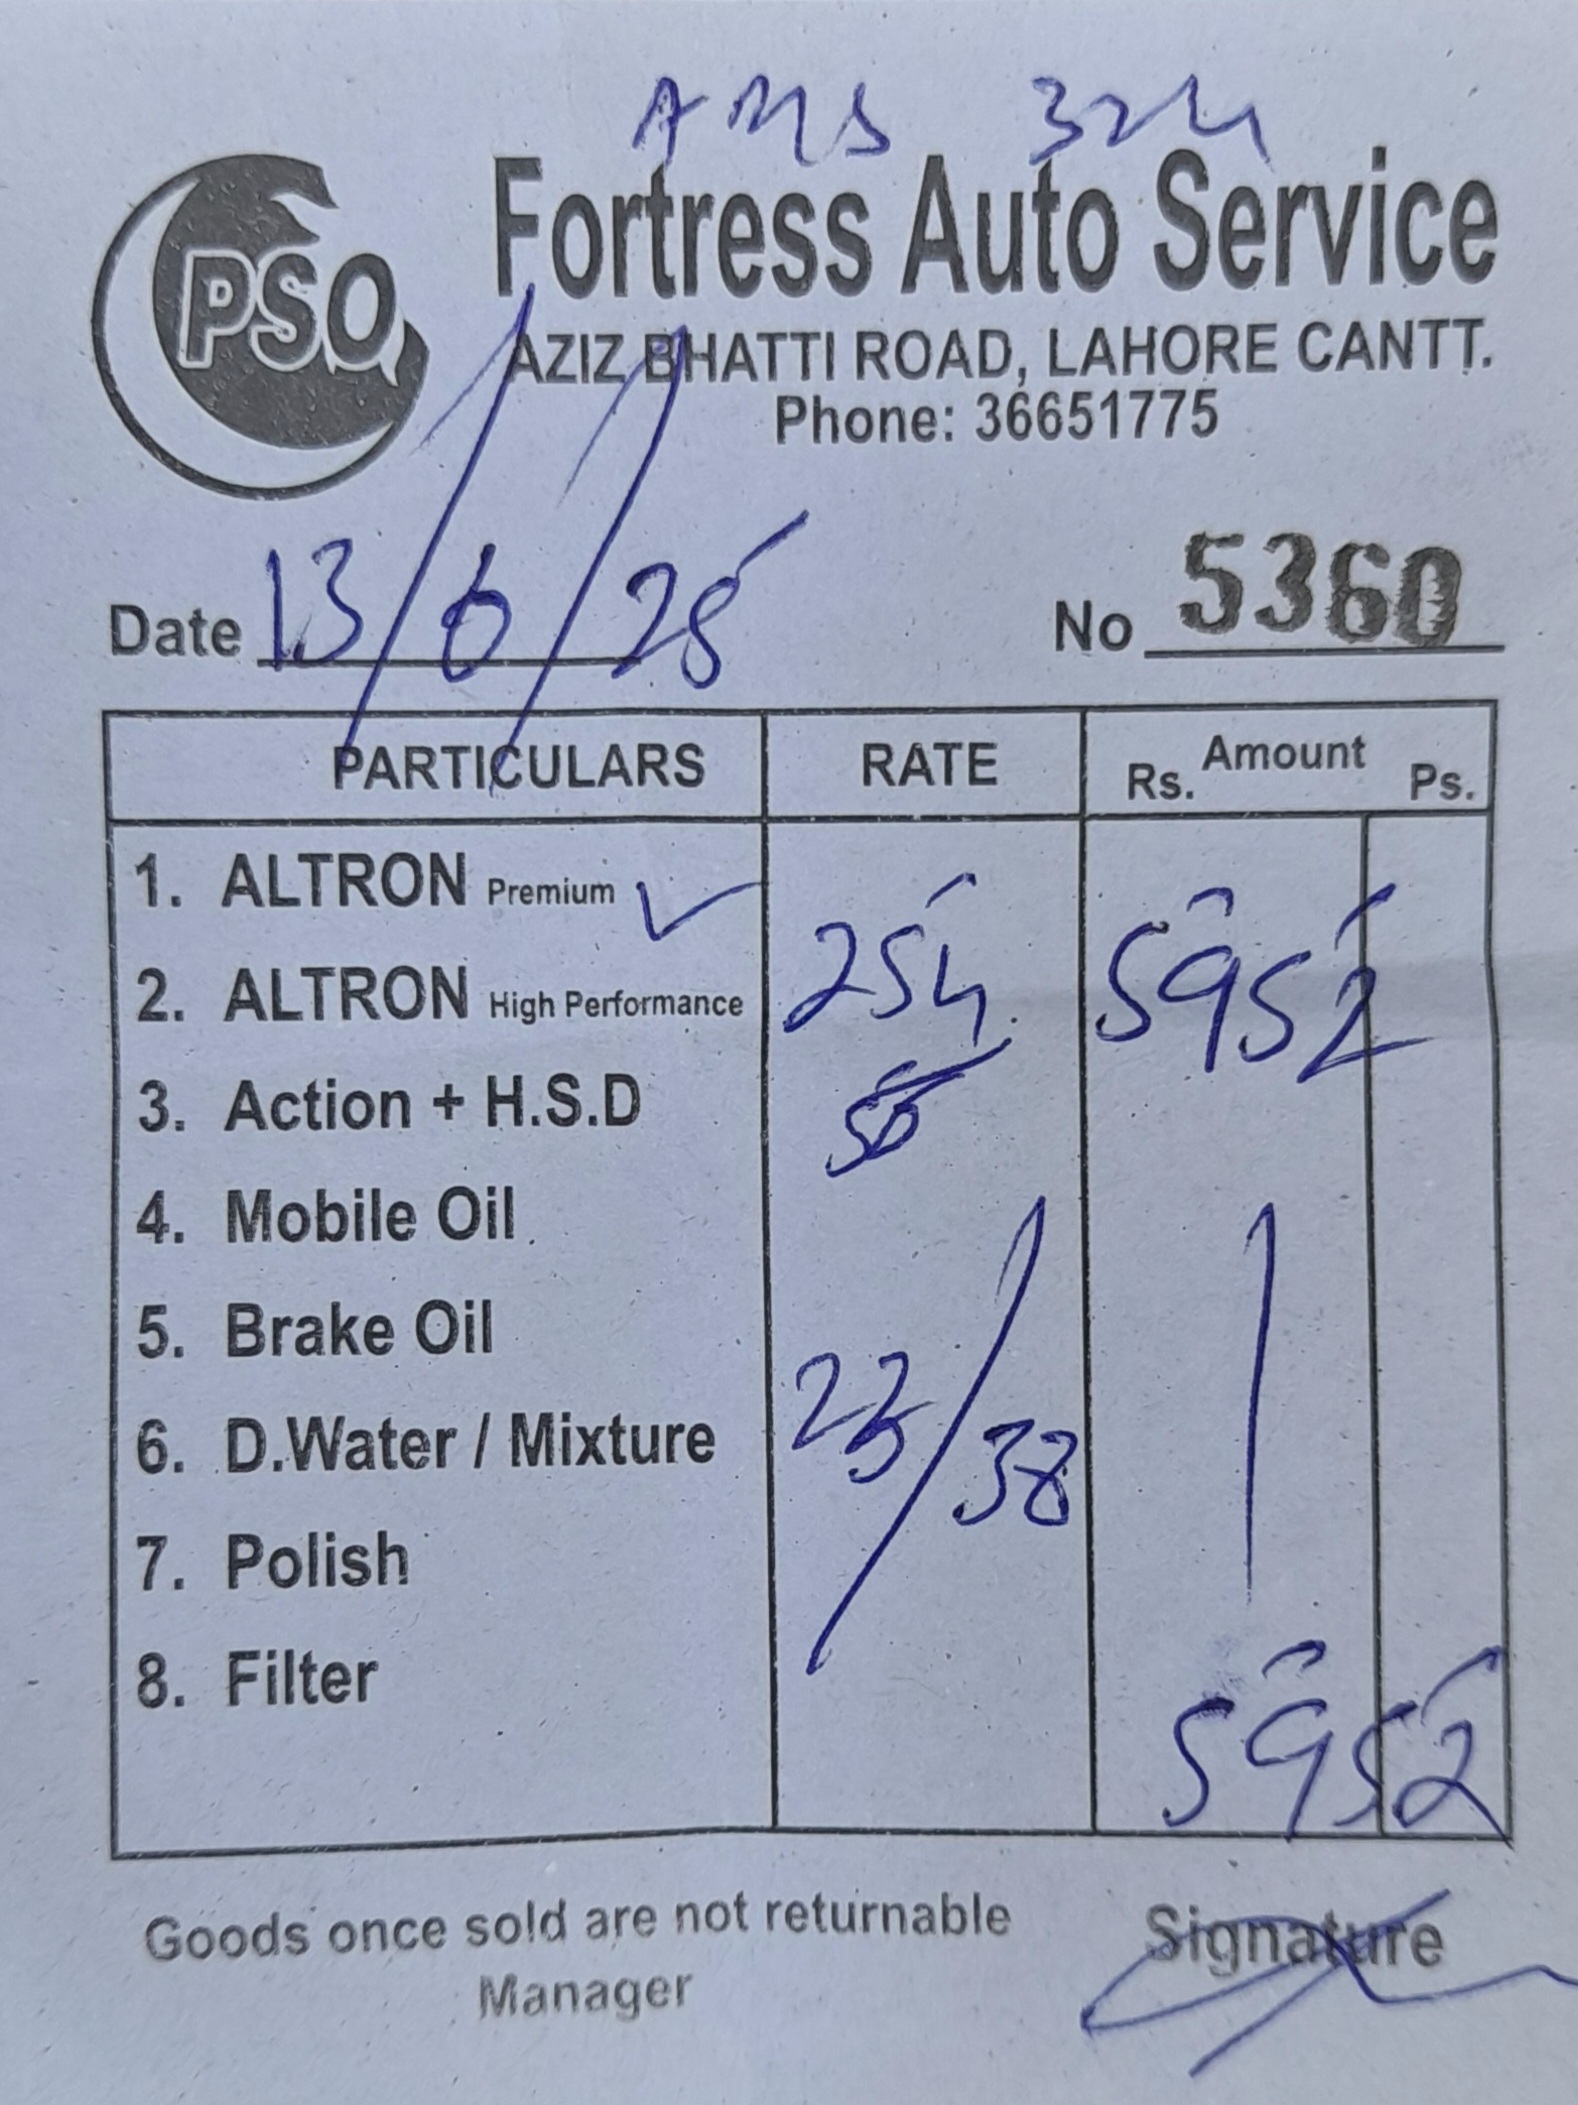 AMS 324
PSO
Fortress Auto Service
AZIZ BHATTI ROAD, LAHORE CANTT.
Phone: 36651775
Date 13/6/25 No 5360
PARTICULARS RATE Amount
Rs. Ps.
1. ALTRON Premium ✓
2. ALTRON High Performance 254 5952
3. Action + H.S.D
4. Mobile Oil
5. Brake Oil
6. D.Water / Mixture 23/38
7. Polish
8. Filter
5952
Goods once sold are not returnable Signature
Manager